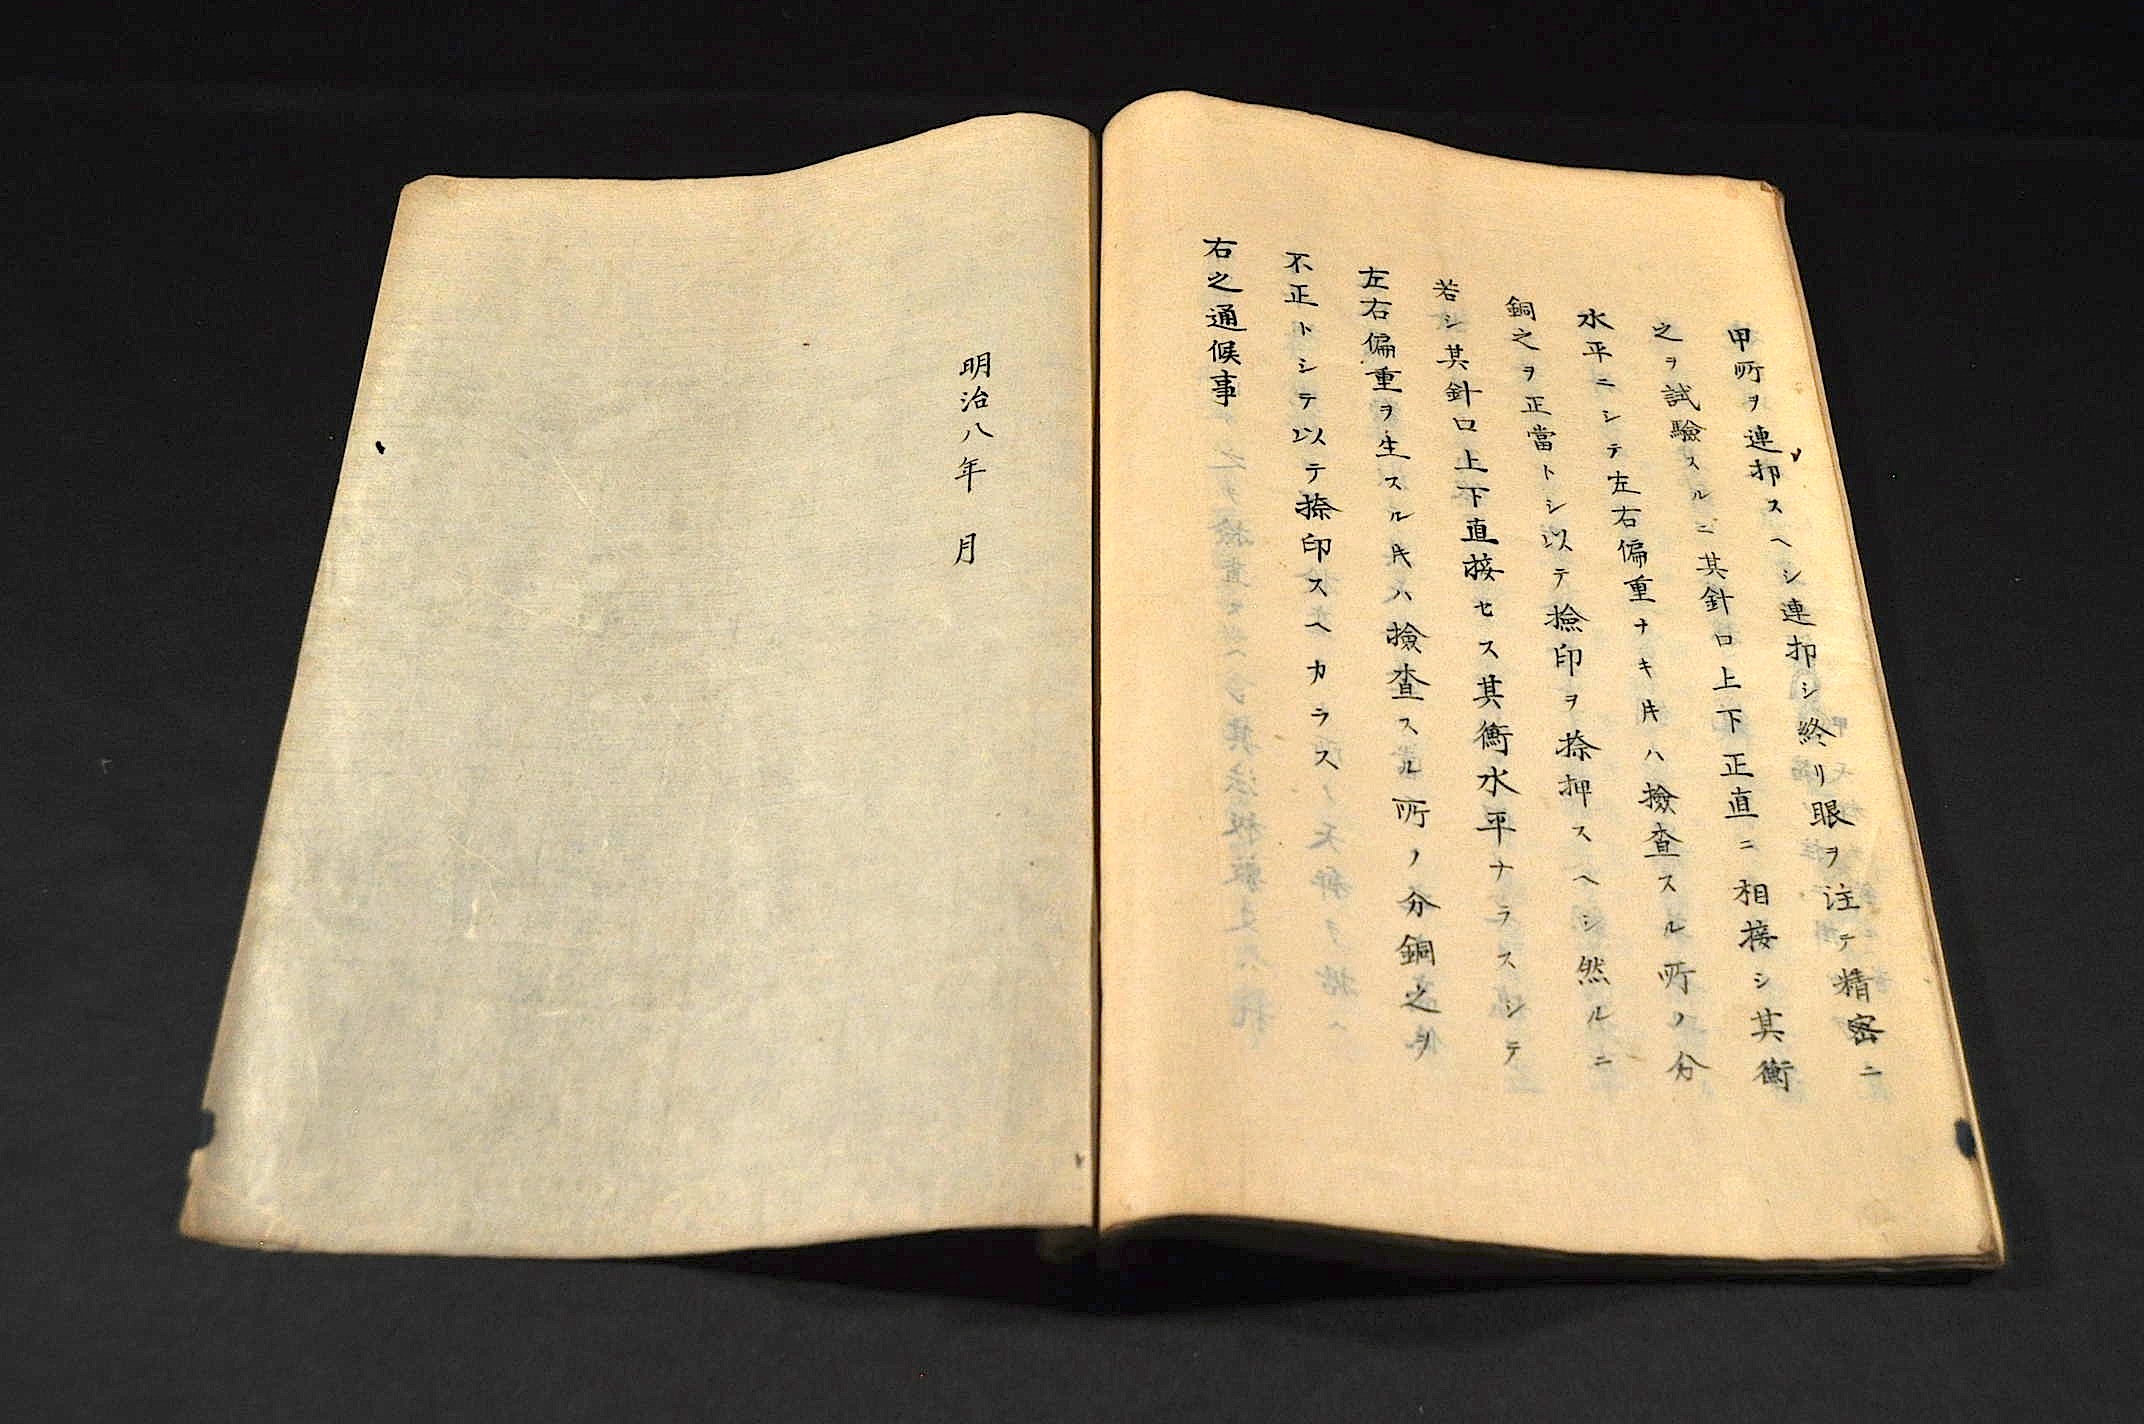 甲所ヲ連抑スヘシ連抑シ終リ眼ヲ注テ精密ニ
之ヲ試驗スルニ其針口上下正直ニ相接シ其衡
水平ニシテ左右偏重ナキ𪜈ハ撿査スル所ノ分
銅之ヲ正當トシ以テ撿印ヲ捺押スヘシ然ルニ
若シ其針口上下直接セス其衡水平ナラスシテ
左右偏重ヲ生スル𪜈ハ撿査スル所ノ分銅之ヲ
不正トシテ以テ捺印スヘカラス
右之通候事
明治八年　月